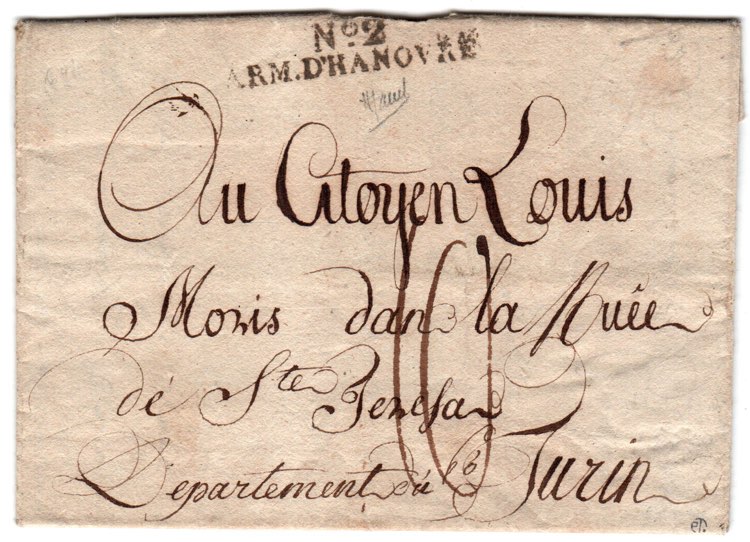 No. 2
ARM. D'HANOVRE
Au Citoyen Louis
Moris dans la Ruêe
de Ste Teresa
Departement du Turin